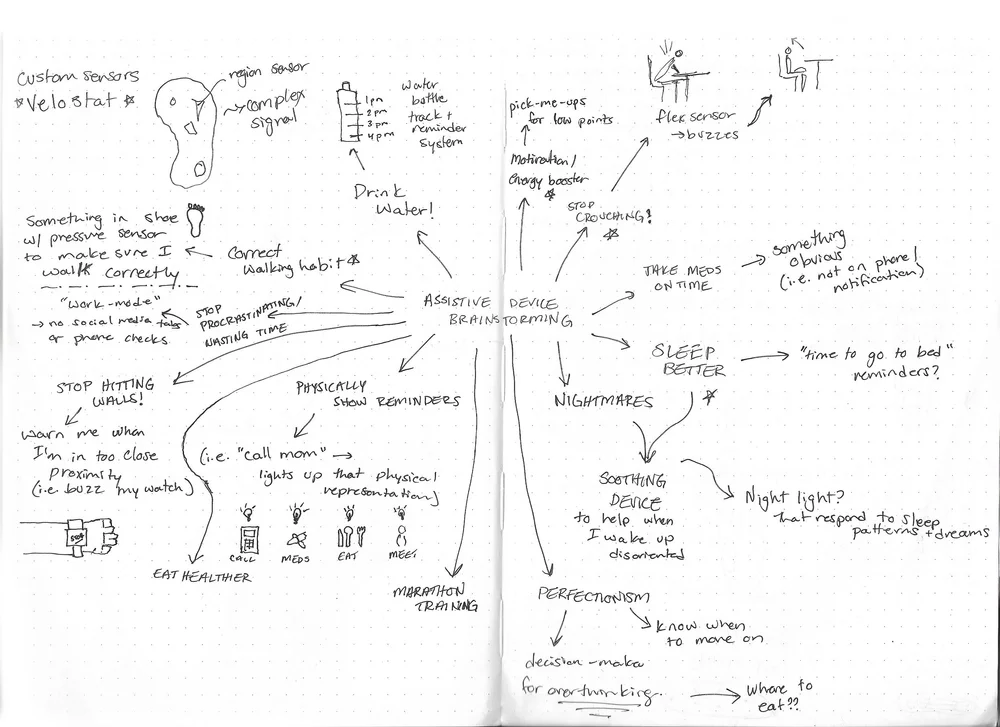 Custom sensors
* Velostat *
region sensor
complex
signal
1pm
2 pm
3 pm
4 pm
water
bottle
track +
reminder
system
Drink
Water!
Something in shoe
w/ pressure sensor
to make sure I
walk correctly
Correct
walking habit *
"work-mode"
→ no social media tabs
or phone checks
STOP
PROCRASTINATING/
WASTING TIME
ASSISTIVE DEVICE
BRAINSTORMING
STOP HITTING
WALLS!
Warn me when
I'm in too close
proximity
(i.e. buzz my watch)
EAT HEALTHIER
PHYSICALLY
SHOW REMINDERS
(i.e. "call mom" →
lights up that physical
representation)
CALL
MEDS
EAT
MEET
MARATHON
TRAINING
pick-me-ups
for low points
Motivation/
energy booster
*
STOP
CROUCHING!
*
flex sensor
→ buzzes
TAKE MEDS
ON TIME
something
obvious
(i.e. not on phone/
notification)
SLEEP
BETTER
*
"time to go to bed"
reminders?
NIGHTMARES
SOOTHING
DEVICE
to help when
I wake up
disoriented
Night light?
that respond to sleep
patterns + dreams
PERFECTIONISM
know when
to move on
decision-maker
for overthinking.
Where to
eat??